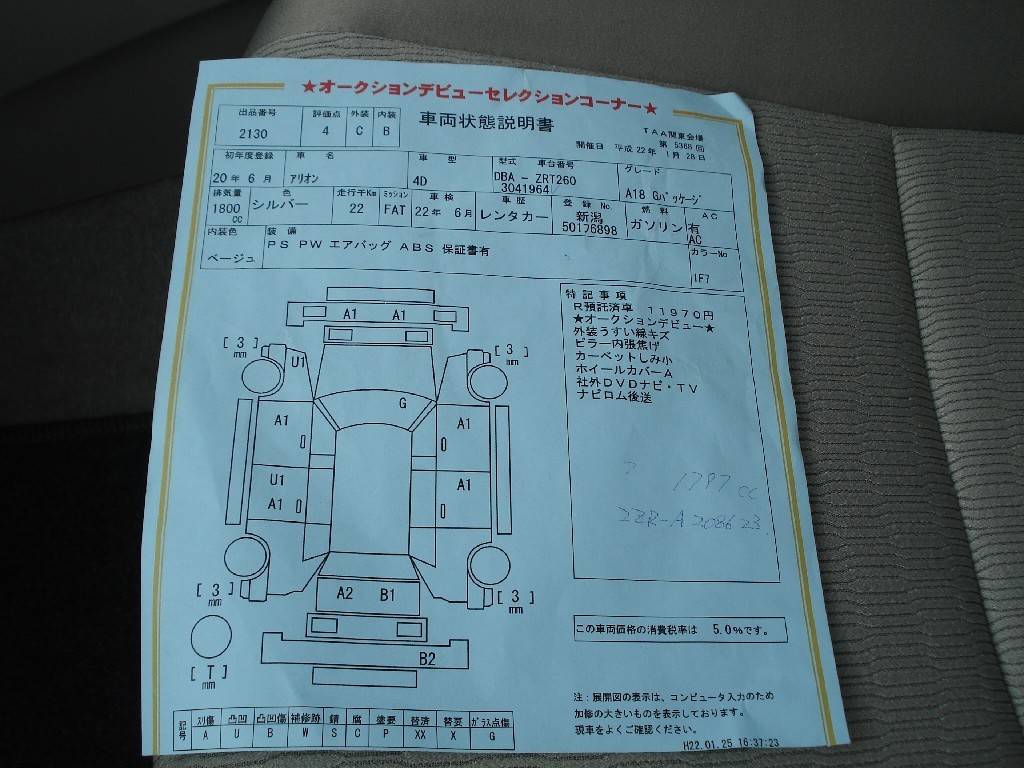 ★オークションデビューセレクションコーナー★
出品番号 評価点 外装 内装
2130 4 C B
車両状態説明書
TAA関東会場
第 5368 回
開催日 平成 22年 1月 28日
初年度登録 車 名 車 型 型式 車台番号 グレード
20年 6月 アリオン 4D DBA - ZRT260 A18 Gパッケージ
3041964
排気量 色 走行千Km ミッション 車検 車歴 登録 No. 燃料 AC
1800 cc シルバー 22 FAT 22年 6月 レンタカー 新潟 ガソリン 有
50176898 AC
内装色 装備 カラーNo
ベージュ PS PW エアバッグ ABS 保証書有 1F7
特記事項
R預託済車 11970円
★オークションデビュー★
外装うすい線キズ
ピラー内張焦げ
カーペットしみ小
ホイールカバーA
社外DVDナビ・TV
ナビロム後送
A1 A1
[ 3 ] mm U1 [ 3 ] mm
G
A1 A1
U1 A1
A1
? 1797 cc
2ZR-A208623
[ 3 ] mm A2 B1 [ 3 ] mm
この車両価格の消費税率は 5.0%です。
B2
[ T ] mm
注:展開図の表示は、コンピュータ入力のため
加修の大きいものを表示しております。
現車をよくご確認ください。
記号 刈傷 凸凹 凸凹傷 補修跡 錆 腐 塗要 替済 替要 ガラス点傷
A U B W S C P XX X G
H22.01.25 16:37:23